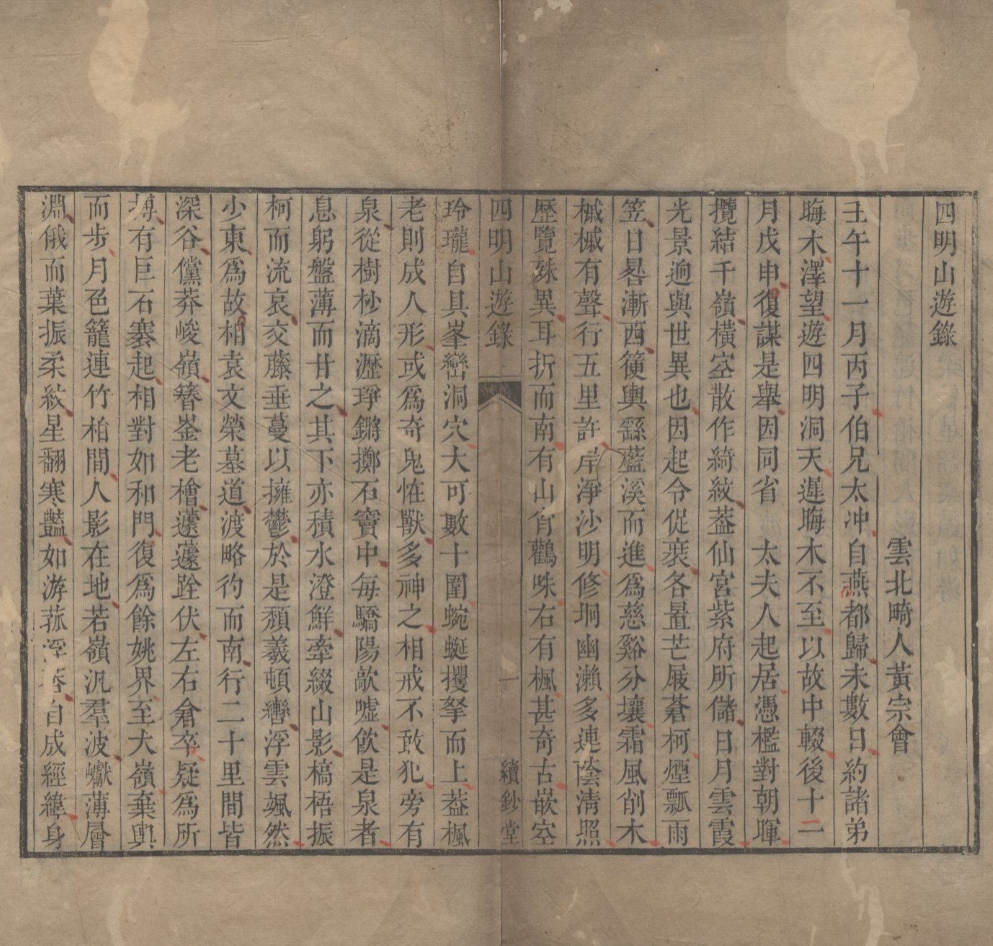 四明山遊錄
雲北畸人黃宗會
壬午十一月丙子伯兄太冲自燕都歸未數日約諸弟
晦木澤望遊四明洞天遲晦木不至以故中輟後十二
月戊申復謀是舉因同省　太夫人起居憑檻對朝暉
攬結千嶺橫空散作綺紋葢仙宮紫府所儲日月雲霞
光景逈與世異也因起令促裝各置芒屩蒼柯煙瓢雨
笠日晷漸西籃輿繇藍溪而進爲慈谿分壤霜風削木
槭槭有聲行五里許岸淨沙明修坰幽瀨多連陰淸照
歷覽殊異耳折而南有山肖鸛咮右有楓甚奇古嵌空
四明山遊錄
一
續鈔堂
玲瓏自具峯巒洞穴大可數十圍蜿蜒攫拏而上葢楓
老則成人形或爲奇鬼恠獸多神之相戒不敢犯旁有
泉從樹杪滴瀝琤鏘擲石竇中每驕陽歊噓飮是泉者
息躬盤薄而甘之其下亦積水澄鮮牽綴山影槁梧振
柯而流哀交藤垂蔓以擁鬱於是頹羲頓轡浮雲颯然
少東爲故相袁文榮墓道渡略彴而南行二十里間皆
深谷儻莽峻嶺簪崟老檜蘧蘧跧伏左右倉卒疑爲所
搏有巨石蹇起相對如和門復爲餘姚界至大嶺棄輿
而步月色籠連竹柏間人影在地若嶺汎羣波巘薄層
淵俄而葉振柔紋星翻寒豔如游菰浮 白成經緯身